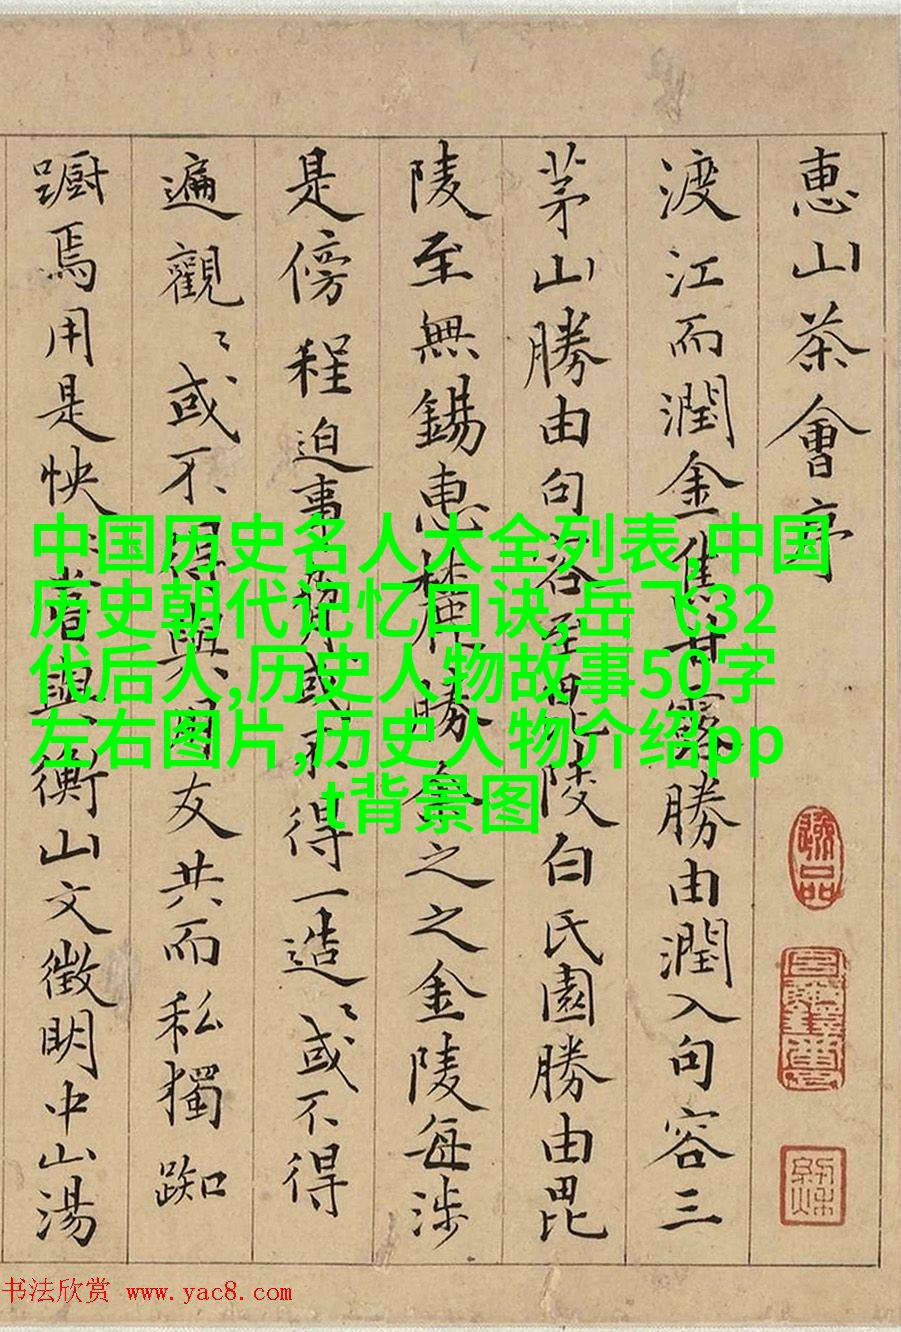 惠山茶會序
渡江而潤金焦甘露勝由潤入句容三
茅山勝由句容至毘陵白氏園勝由毘
陵至無錫惠麓勝余之之金陵每涉
是傍程迫事奪或不得一造〻或不得
遍觀〻或不得與朋友共而私獨踟
躕焉用是怏〻者與衡山文徵明中山湯
中国历史名人大全列表,中国
历史朝代记忆口诀,岳飞32
代后人,历史人物故事50字
左右图片,历史人物介绍pp
t背景图
书法欣赏 www.yac8.com